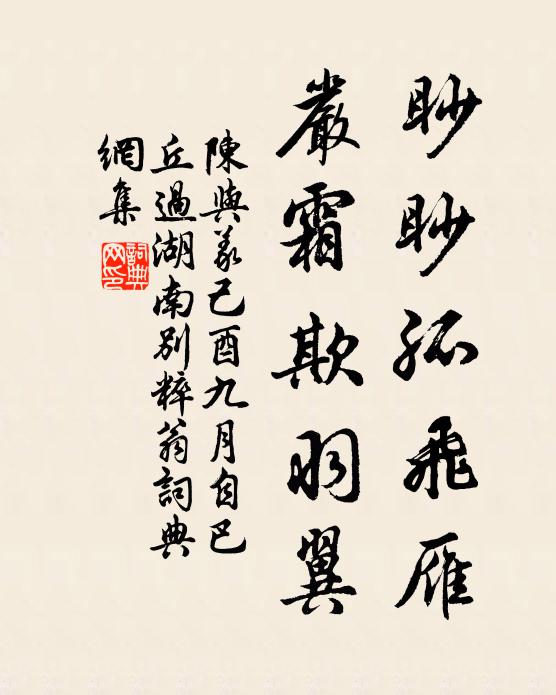 眇眇孤飛雁
嚴霜欺羽翼
陳與義己酉九月自巴
丘過湖南別粹翁詞典
網集
詞典網印